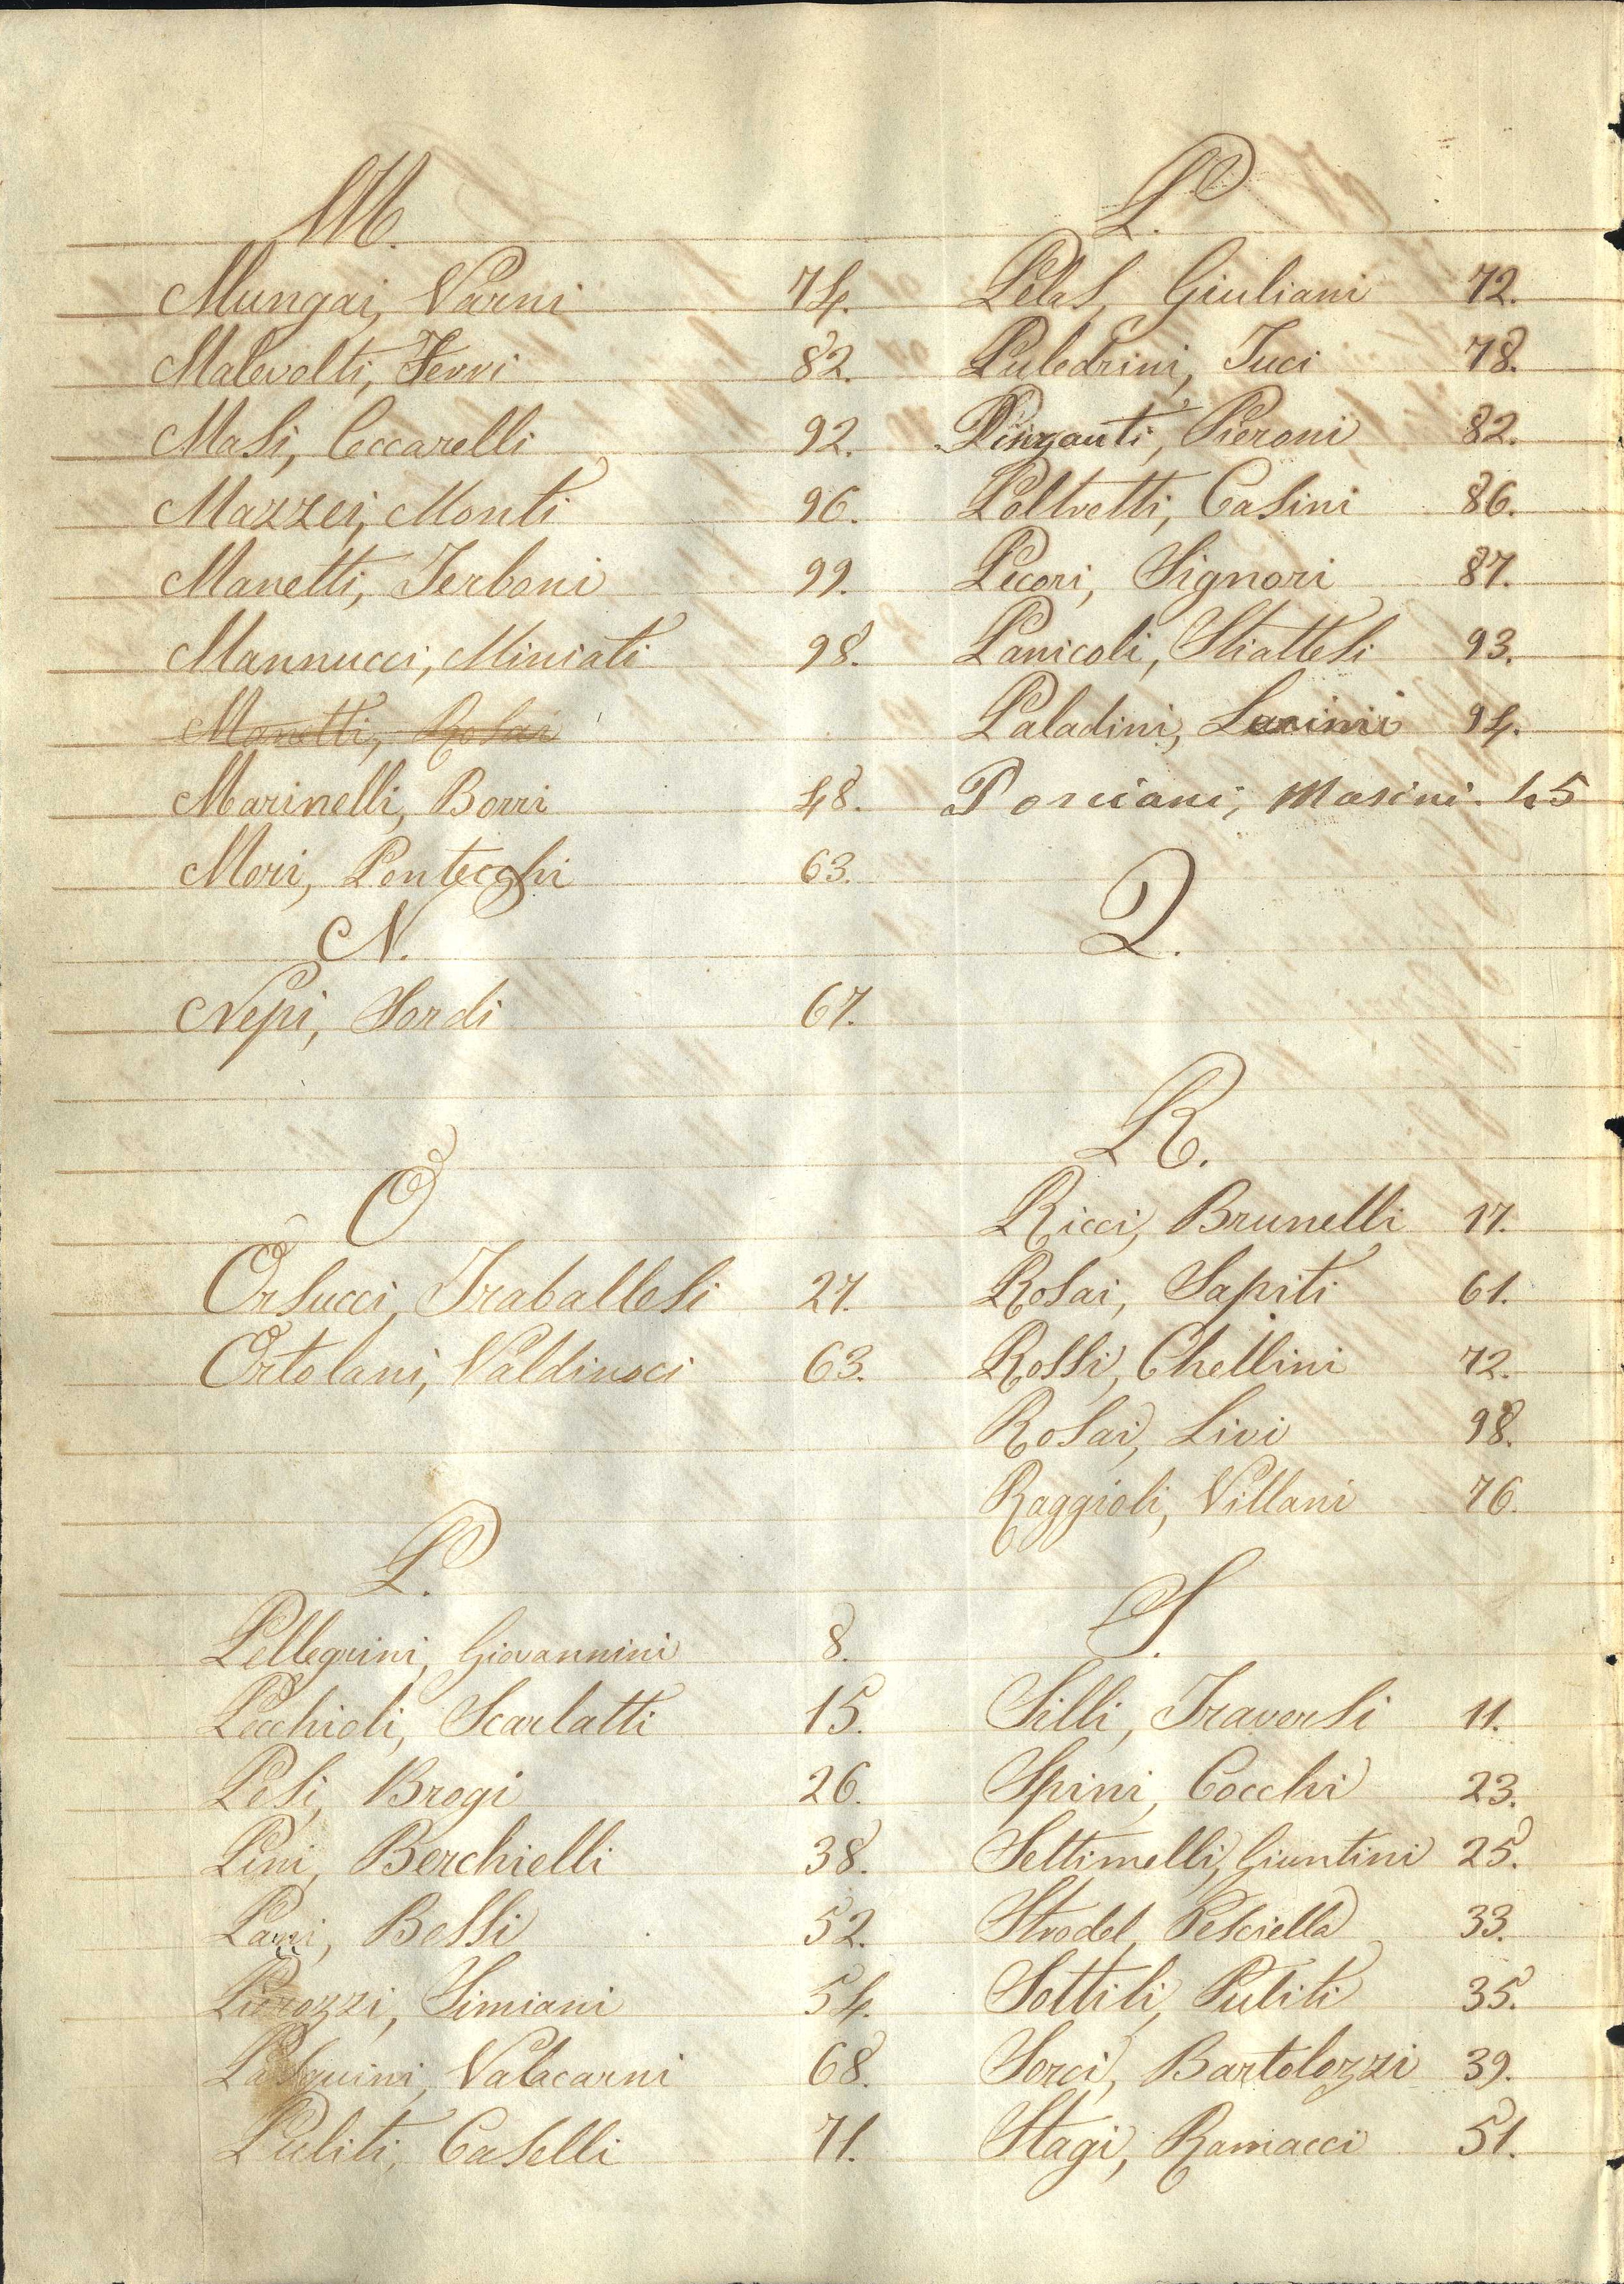 M.
Mungai, Varni 74.
Malevolti, Ferri 82.
Masi, Ceccarelli 92.
Mazzei, Monti 96.
Manetti, Terboni 99.
Mannucci, Miniati 98.
Manetti, Rosai
Marinelli, Borri 48.
Mori, Pontecchi 63.
N.
Nepi, Sordi 67.
O
Orsucci, Traballesi 27.
Ortolani, Valdinoci 63.
P.
Pellegrini, Giovannini 8.
Pecchioli, Scarlatti 15.
Pesi, Brogi 26.
Pini, Berchielli 38.
Bessi 52.
Simiani 54.
Pasquini, Valacarni 68.
Puliti, Caselli 71.
P.
Pelas, Giuliani 72.
Puledrini, Tuci 78.
Pinzauti, Pieroni 82.
Poltretti, Casini 86.
Pecori, Signori 87.
Panicoli, Stiattesi 93.
Paladini, 94.
Porciani, Masini. 45
Q.
R.
Ricci, Brunelli 17.
Rosai, Sapiti 61.
Rossi, Chellini 72.
Rosai, Livi 98.
Raggioli, Villani 76.
S.
Silli, Traversi 11.
Spini, Cocchi 23.
Settimelli, Giuntini 25.
Strodel, Pesciella 33.
Sottili, Puliti 35.
Sorci, Bartolozzi 39.
Stagi, Ramacci 51.